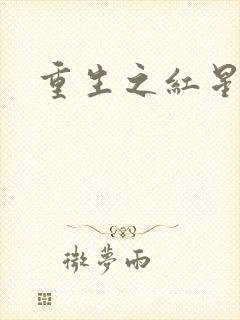 重生之紅星
微夢雨